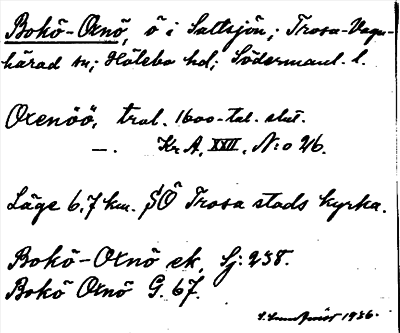 Bokö-Oxnö, ö i Saltsjön; Trosa-Vagn-
härad sn; Hölebo hd; Södermanl. l.
Oxenöö, tral. 1600-tal. slut.
—. Kr A, XXII, N:o 26.
Läge 6,7 km. SÖ Trosa stads kyrka.
Bokö-Oxnö ek, Gj: 238.
Bokö Oxnö G. 67.
S. Lundqvist 1936.